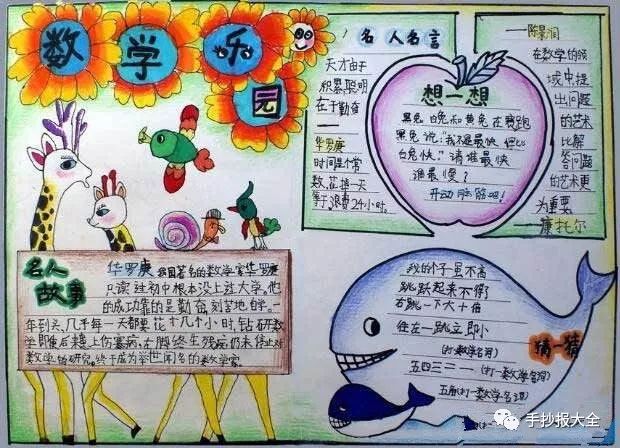 数学乐园
名人名言
天才由于
积累,聪明
在于勤奋
——
华罗庚
时间是个常
数,花掉一天
等于浪费24小时。
想一想
黑兔 白兔和黄兔在赛跑
黑兔说:"我不是最快 但比
白兔快."请谁最快
谁最慢?
开动脑筋吧!
—陈景润
在数学的领
域中,提
出问题
的艺术
比解
答问题
的艺术更
为重要
—康托尔
名人
故事
华罗庚 我国著名的数学家华罗庚
只读过初中根本没上过大学,他
的成功靠的是勤奋刻苦地自学。一
年到头,几乎每一天都要花十几个小时,钻研数
学即使后来患上伤寒病,右脚终生残病仍未停止对
数学的研究,终于成为举世闻名的数学家.
我的个子虽不高
跳跃起来不得了
右跳一下大十倍
往左一跳立即小
(打一数学名词)
猜一猜
五四三二一(打一数学名词)
五角(打一数学名词)
手抄报大全